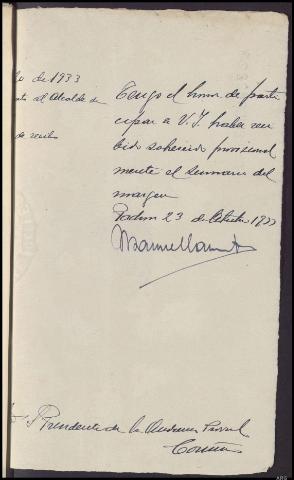 de 1933
al Alcalde de
de recibo
Tengo el honor de parti
cipar a V.I. haber reci
bido sobreseido provisional
mente el sumario del
margen
23 de Octubre 1933
Presidente de la Audiencia Provinl.
Coruña
ARG